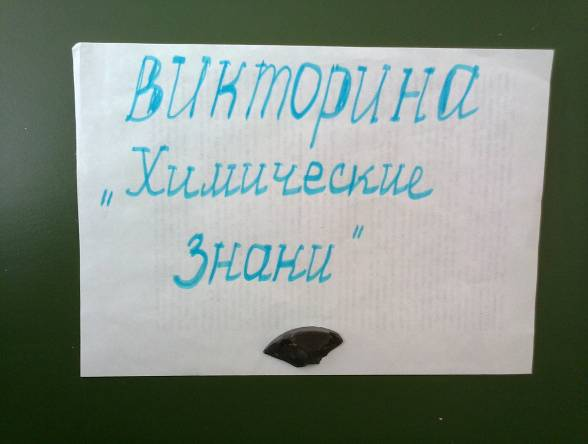 Викторина
„Химические
знаки"